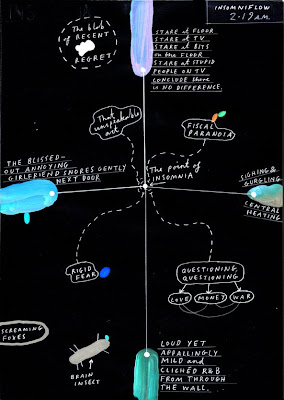 INSOMNIFLOW
2:19am.
The blob
of RECENT
REGRET
STARE at FLOOR
STARE at TV
STARE at BITS
on the FLOOR
STARE at STUPID
PEOPLE ON TV
CONCLUDE there
is NO DIFFERENCE.
That
unspeakable
act
FISCAL
PARANOIA
THE BLISSED-
OUT ANNOYING
GIRLFRIEND SNORES GENTLY
NEXT DOOR
The point of
INSOMNIA
SIGHING &
GURGLING
CENTRAL
HEATING
RIGID
FEAR
QUESTIONING,
QUESTIONING
LOVE
MONEY
WAR
SCREAMING
FOXES
BRAIN
INSECT
LOUD YET
APPALLINGLY
MILD and
CLICHÉD R&B
FROM THROUGH
THE WALL.